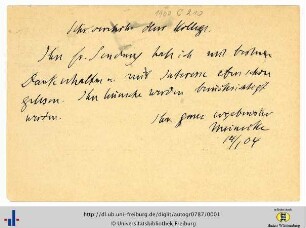 Sehr verehrter Herr Kollege.
Ihre fr. Sendung hab ich mit bestem
Dank erhalten u. mit Interesse eben schon
gelesen. Ihre Wünsche werden berücksichtigt
werden.
Ihr ganz ergebenster
Meinecke
14/1 04
http://dl.ub.uni-freiburg.de/diglit/autogr0787/0001
© Universitätsbibliothek Freiburg